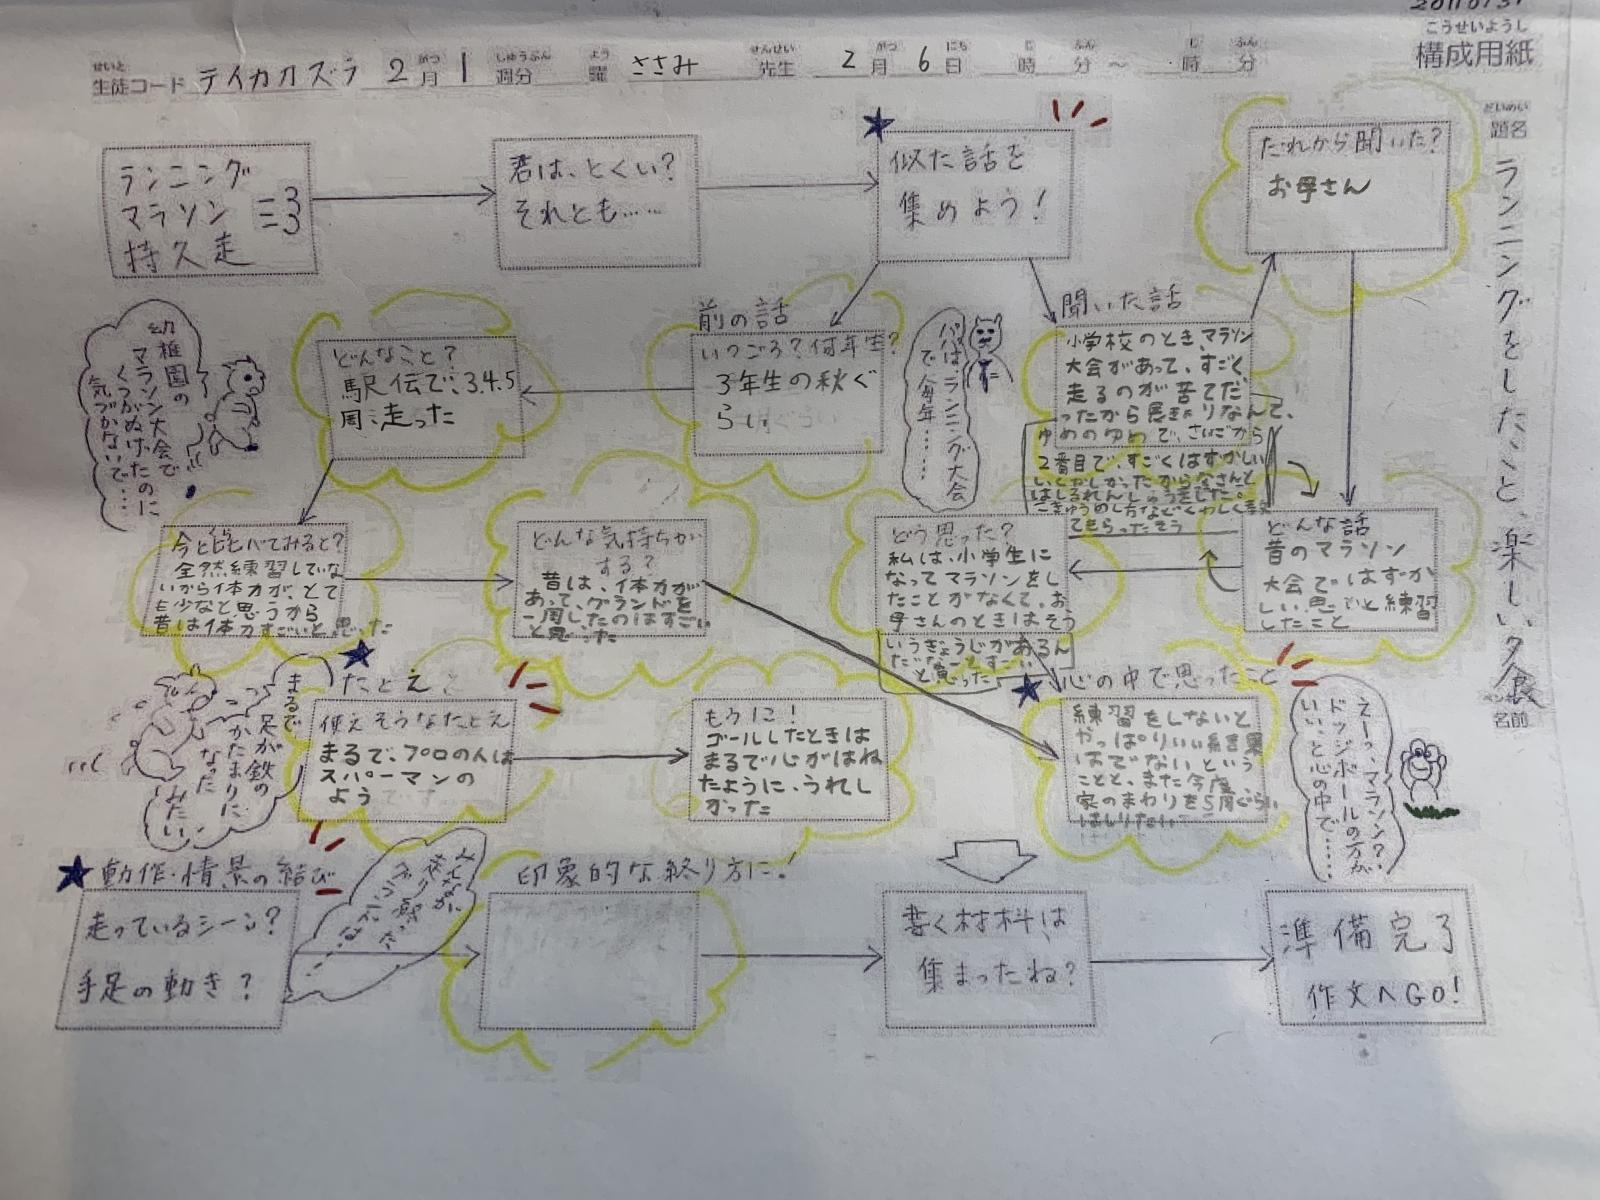 こうせいようし
構成用紙
せいと
生徒コード テイカカズラ 2月 1週分 曜 ささみ 先生 2月 6日 時 分 〜 時 分
だいめい
題名
ランニングをしたことと、楽しい夕食
名前
ランニング
マラソン
持久走
君は、とくい?
それとも……
似た話を
集めよう!
だれから聞いた?
お母さん
幼稚園の
マラソン大会で
くつがぬけたのに
気づかないで…
どんなこと?
駅伝で、3.4.5
周走った
前の話
いつごろ?何年生?
3年生の秋ぐ
らい
パパはランニング大会
で毎年……
聞いた話
小学校のとき、マラソン
大会があって、すごく
走るのが苦てだ
ったから
ゆめのゆめで、さいごから
2番目で、すごくはずかしい
はしるれんしゅうをした。
てもらったそう
今と比べてみると?
全然練習していな
いから体力が、とて
も少なと思うから
昔は体力すごいと思った
どんな気持ちが
する?
昔は、体力が
あって、グランドを
一周したのはすごい
と思った
どう思った?
私は、小学生に
なってマラソンをし
たことがなくて、お
母さんのときはそう
いうぎょうじがあるん
だなーとすごい
と思った
どんな話
昔のマラソン
大会ではずか
しい思いと練習
したこと
まるで
足が鉄の
かたまりに
なった
みたい
たとえ
使えそうなたとえ
まるで、プロの人は
スパーマンの
よう
もう一こ!
ゴールしたときは
まるで心がはね
たように、うれし
かった
心の中で思ったこと
練習をしないと
やっぱりいい結果
はでないという
ことと、また今度
家のまわりを5周ぐらい
はしりたい
えー?、マラソン?
ドッジボールの方が
いい、と心の中で……
動作・情景の結び
走っているシーン?
手足の動き?
みんなが
走り終
印象的な終り方に!
書く材料は
集まったね?
準備完了
作文へGO!